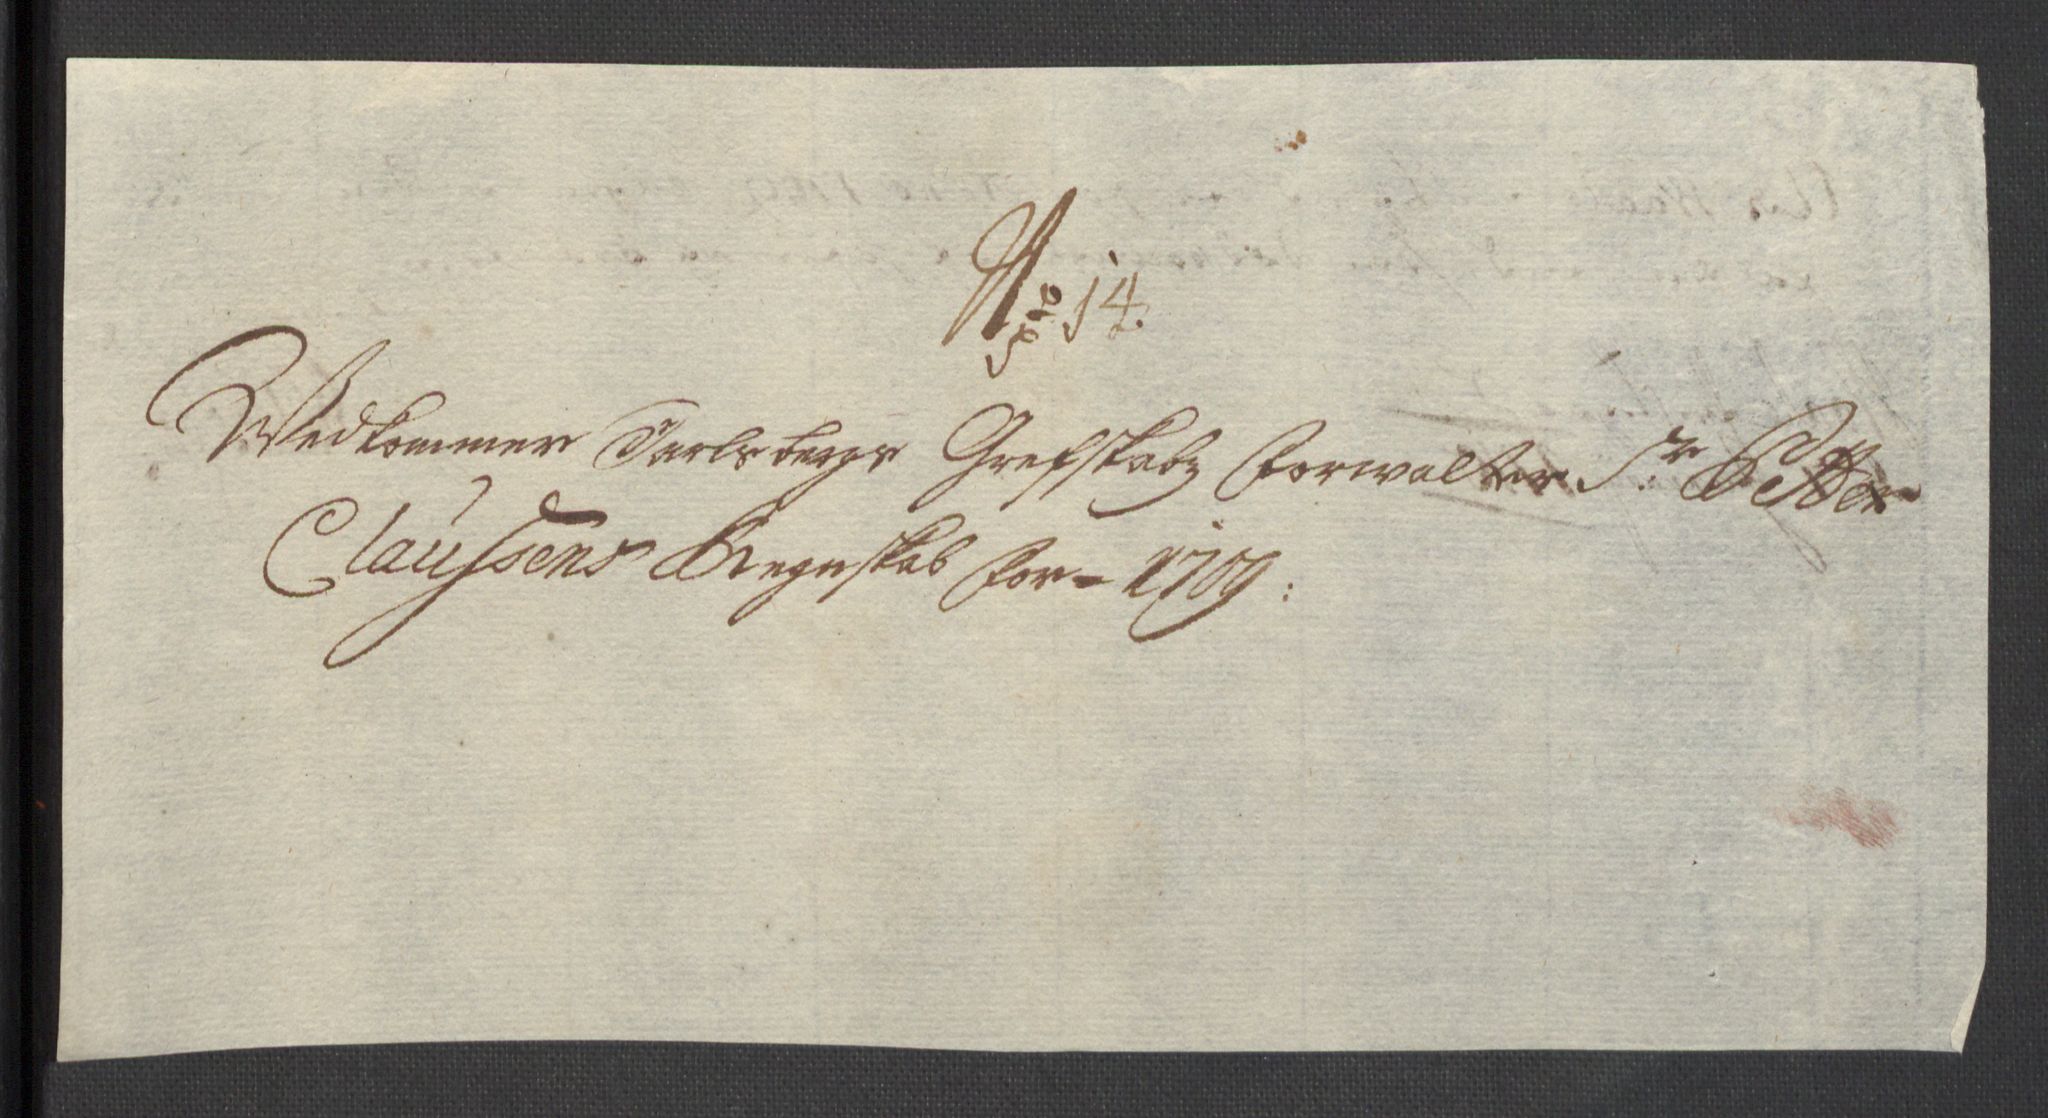 No 14.
Wedkommer Jarlsbergs Grefskabz Forwalter Sr. Petter
Claussens Regnskab for 1709: